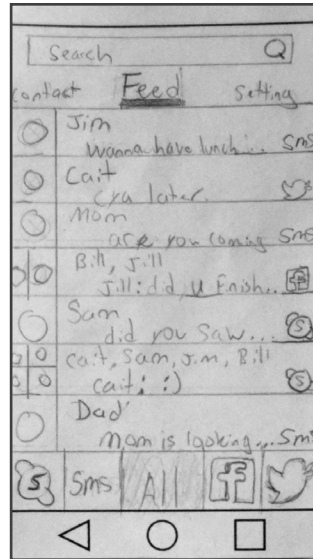 Search
contact Feed Setting
Jim
wanna have lunch... Sms
Cait
cya later.
Mom
are you coming Sms
Bill, Jill
Jill: did u finish... f
Sam
did you saw... S
Cait, Sam, Jim, Bill
cait: :) S
Dad
mom is looking... Sms
S Sms All f